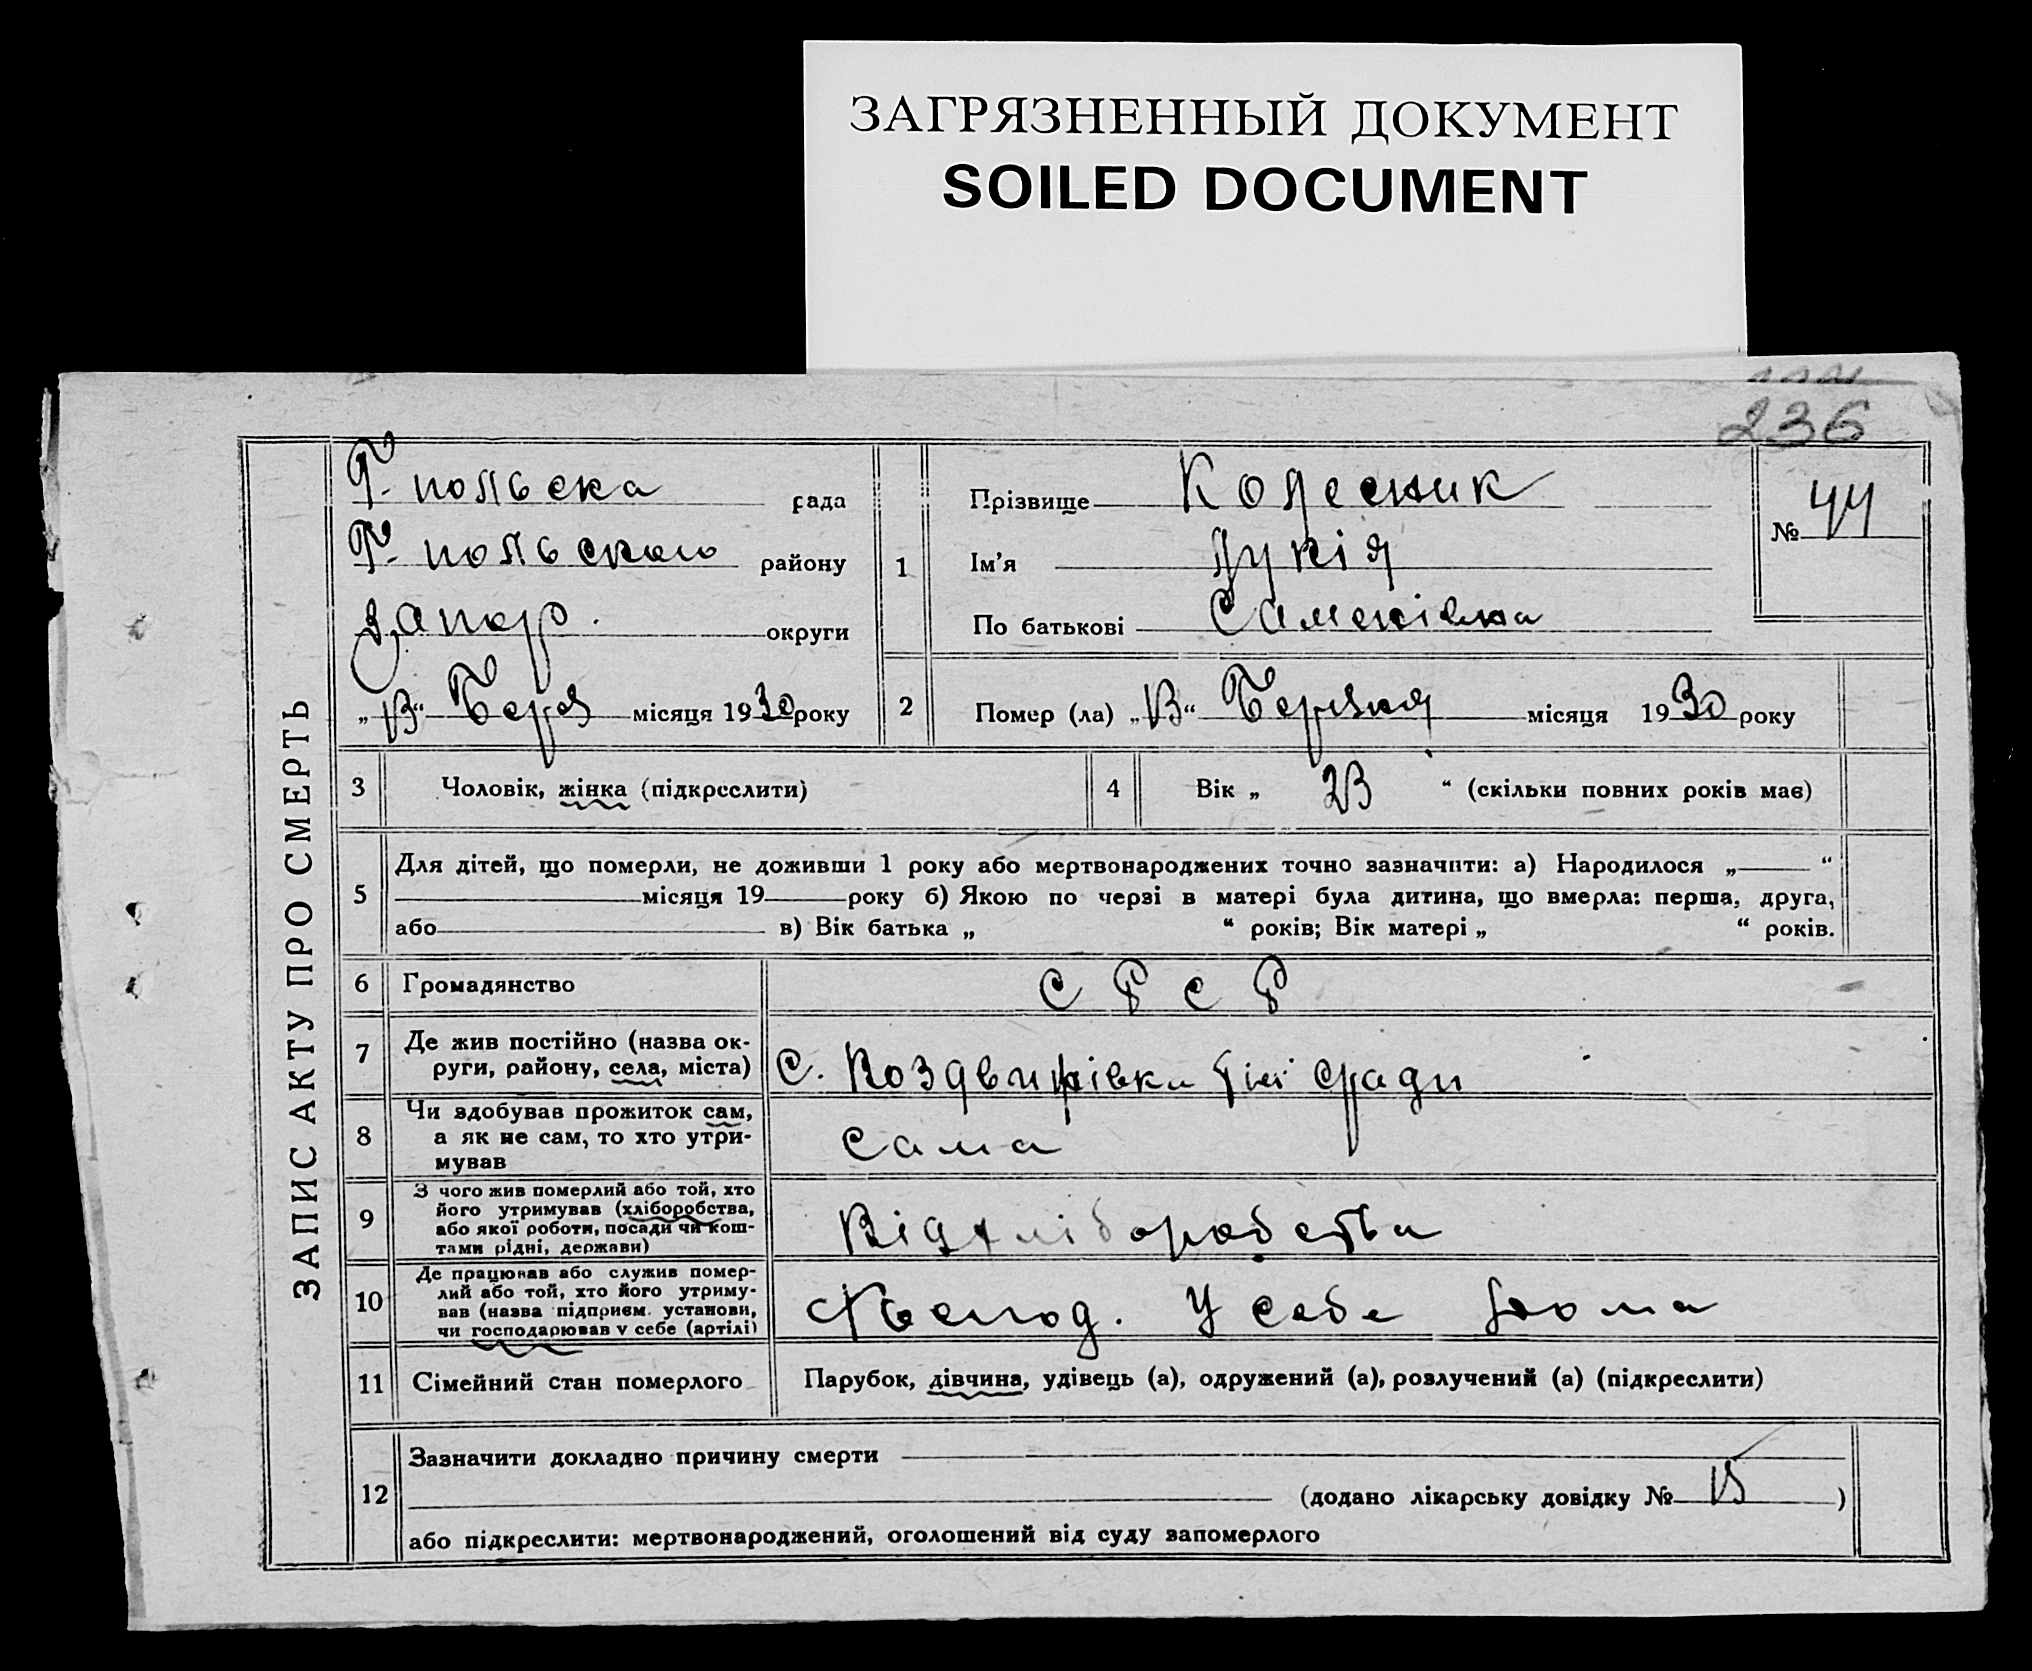 ЗАГРЯЗНЕННЫЙ ДОКУМЕНТ
SOILED DOCUMENT
236
ЗАПИС АКТУ ПРО СМЕРТЬ
Г. польска рада
Г. польского району
Запор. округи
„13“ Берез місяця 1930 року
1
Прізвище Колесник
Ім'я Лукія
По батькові Семенівна
№ 44
2
Помер (ла) „13“ Березня місяця 1930 року
3 Чоловік, жінка (підкреслити)
4 Вік „ 23 “ (скільки повних років має)
5
Для дітей, що померли, не доживши 1 року або мертвонароджених точно зазначити: а) Народилося „ “
місяця 19 року б) Якою по черзі в матері була дитина, що вмерла: перша, друга,
або в) Вік батька „ “ років; Вік матері „ “ років.
6 Громадянство С Р С Р
7 Де жив постійно (назва ок-
руги, району, села, міста) С. Воздвижівка сради
8 Чи здобував прожиток сам,
а як не сам, то хто утри-
мував
сама
9 З чого жив померлий або той, хто
його утримував (хліборобства,
або якої роботи, посади чи кош-
тами рідні, держави)
Від хліборобства
10 Де працював або служив помер-
лий або той, хто його утриму-
вав (назва підприєм. установи,
чи господарював у себе (артілі)
У себе дома
11 Сімейний стан померлого Парубок, дівчина, удівець (а), одружений (а), розлучений (а) (підкреслити)
12
Зазначити докладно причину смерти
(додано лікарську довідку № )
або підкреслити: мертвонароджений, оголошений від суду запомерлого